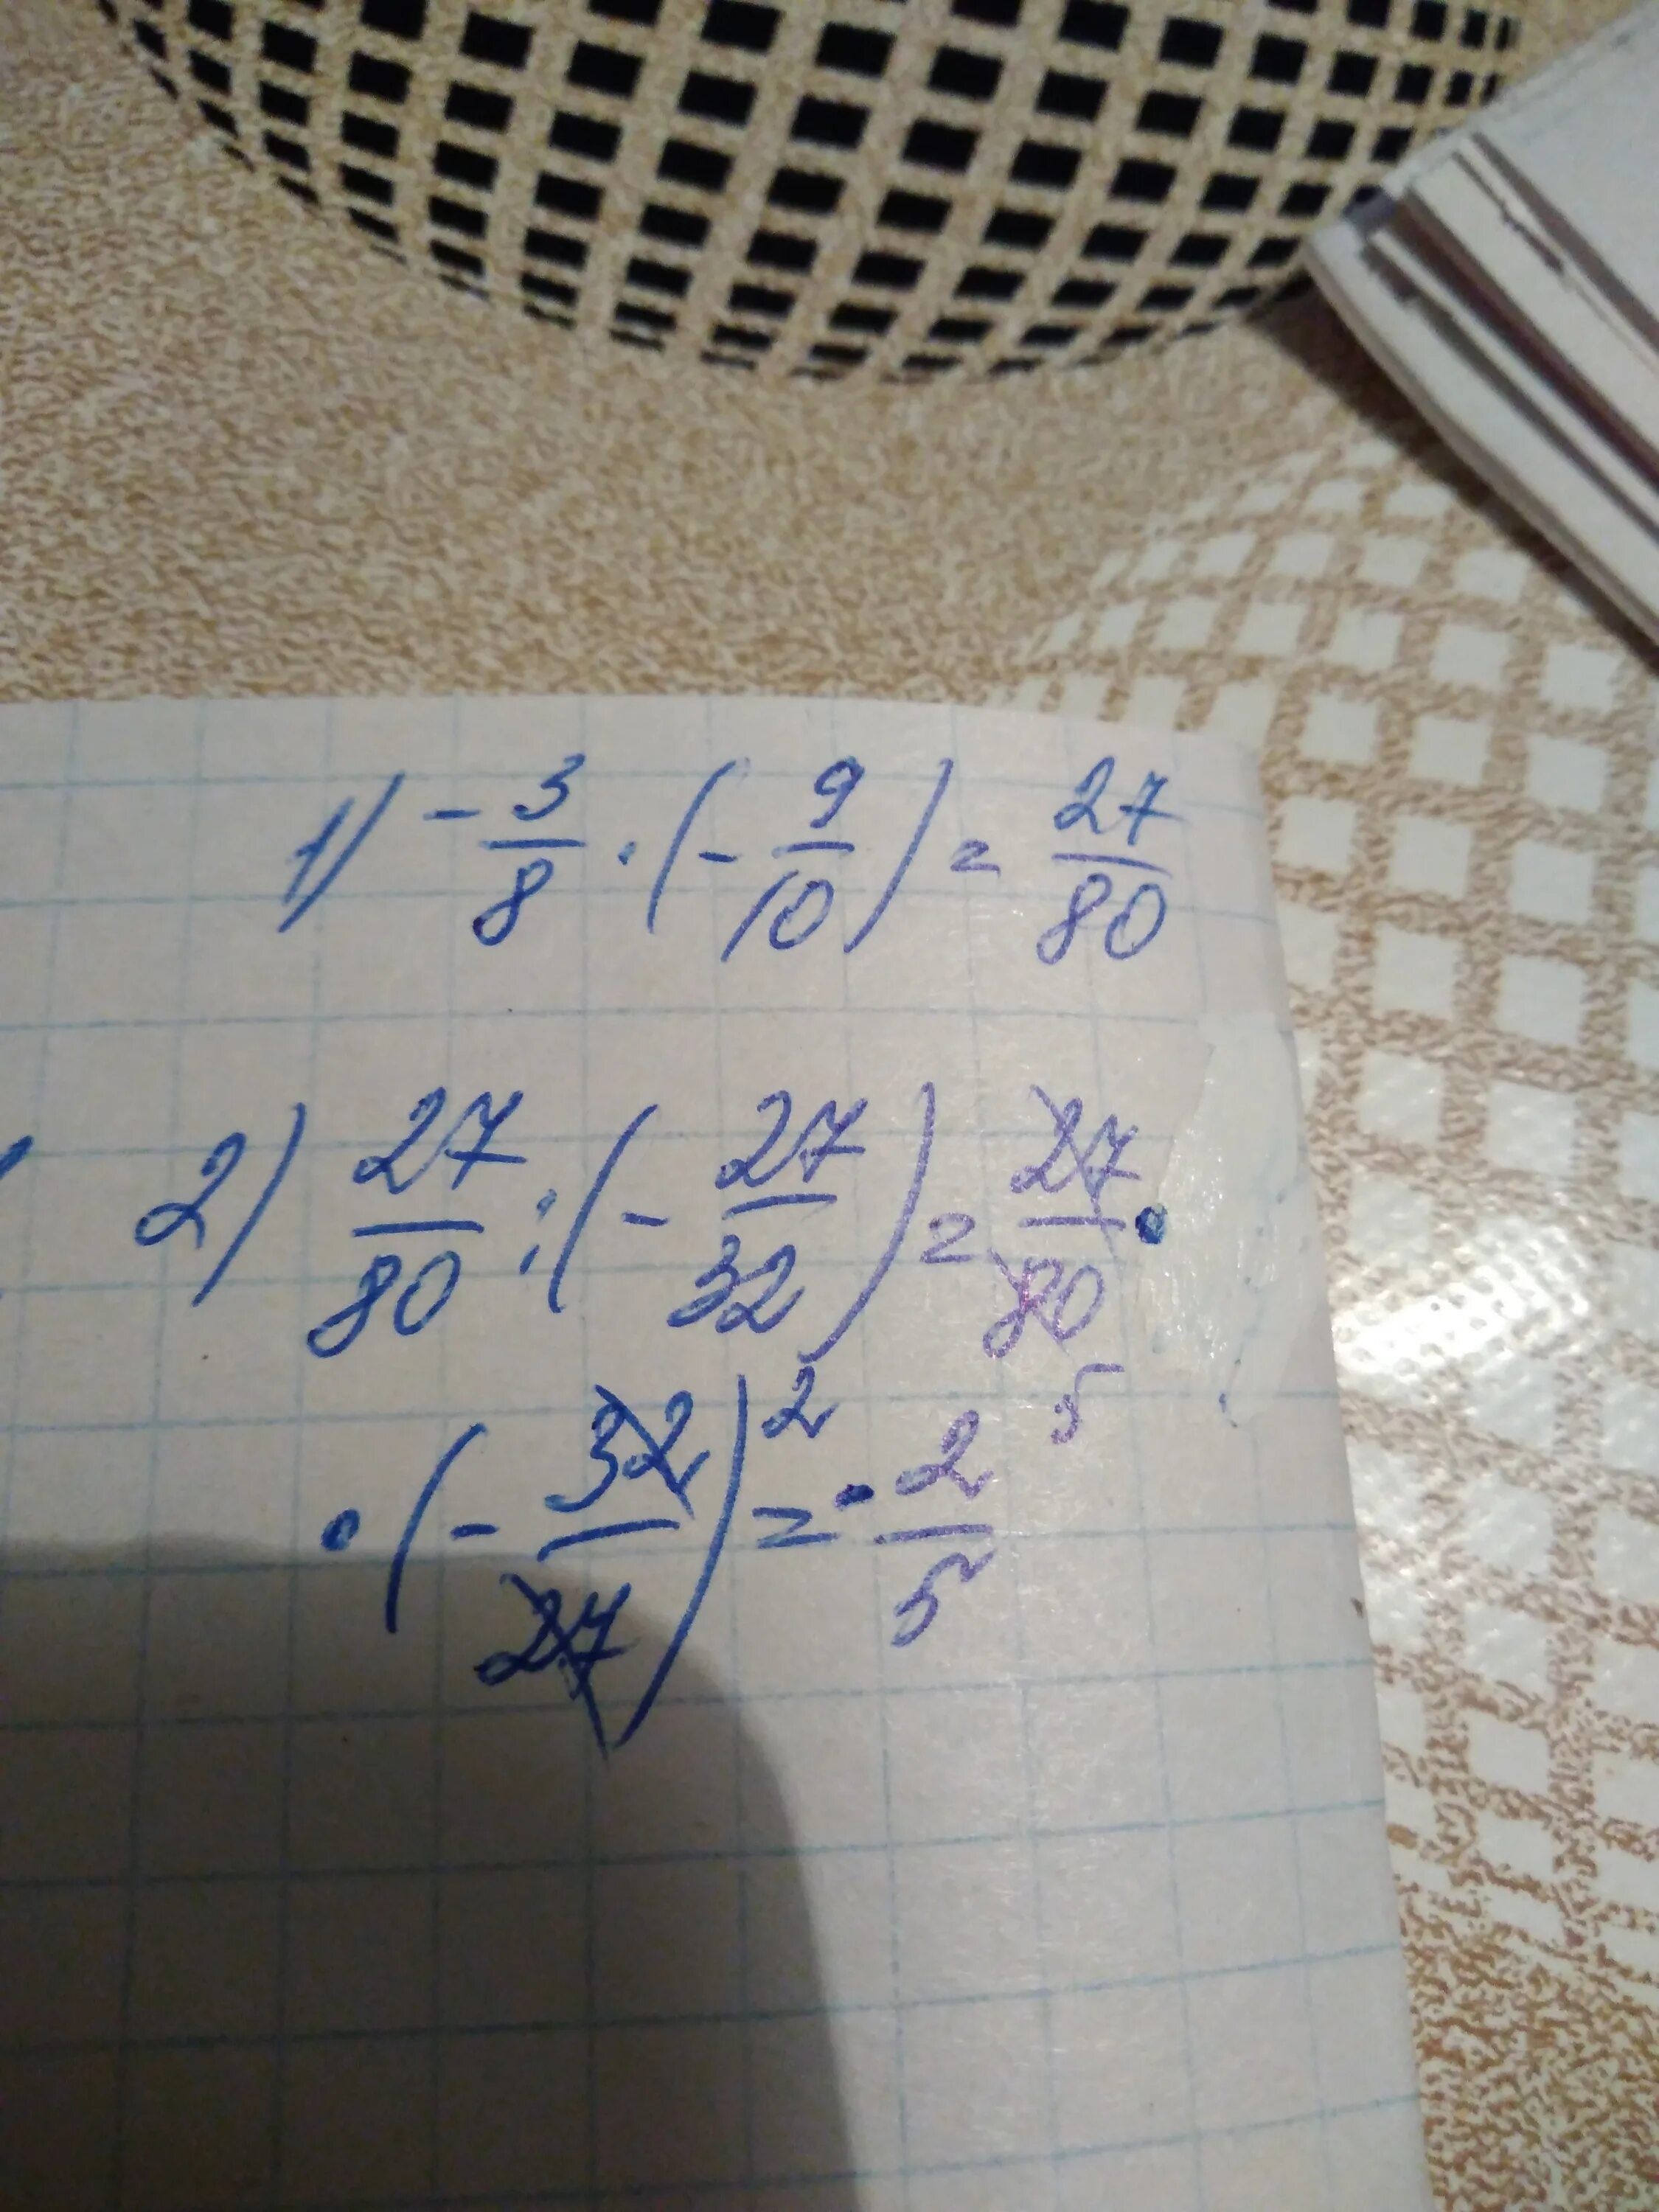 1) - 3/8 · (- 9/10) = 27/80
2) 27/80 : (- 27/32) = 27/80 ·
5
· (- 32/27) 2 = - 2/5